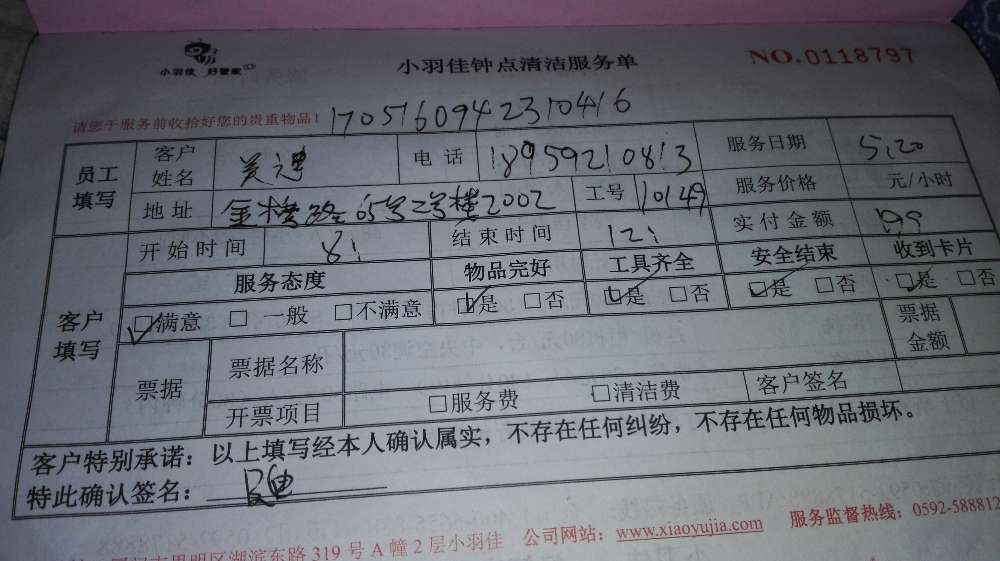 小羽佳 好管家
小羽佳钟点清洁服务单
NO.0118797
请您于服务前收拾好您的贵重物品！ 17051609423 10416
员工填写 客户姓名 电话 18959210813 服务日期 5.20
地址 金榜路65号2号楼2002 工号 10149 服务价格 元/小时
开始时间 8: 结束时间 12: 实付金额 199
客户填写 服务态度 物品完好 工具齐全 安全结束 收到卡片
☑满意 □一般 □不满意 ☑是 □否 ☑是 □否 ☑是 □否 ☑是 □否
票据 票据名称 票据金额
开票项目 □服务费 □清洁费 客户签名
客户特别承诺：以上填写经本人确认属实，不存在任何纠纷，不存在任何物品损坏。
特此确认签名：
思明区湖滨东路 319 号 A 幢 2 层小羽佳 公司网站：www.xiaoyujia.com 服务监督热线：0592-588812